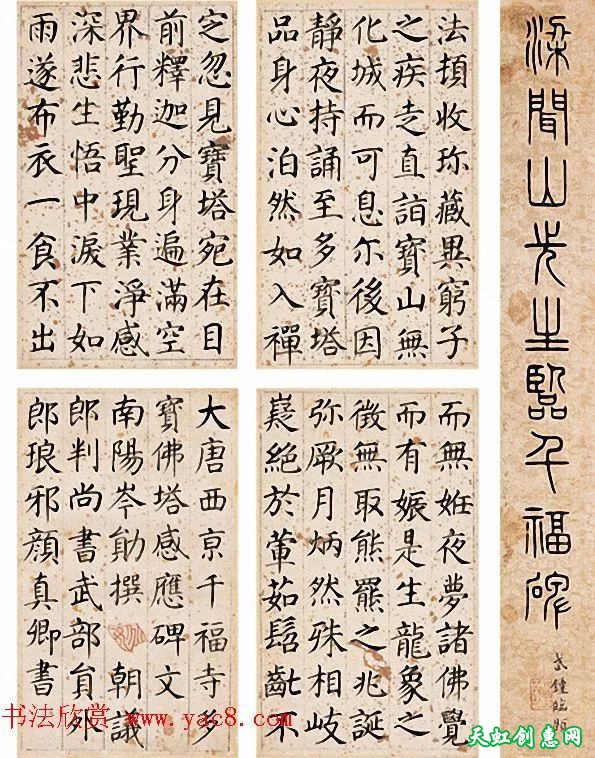 梁聞山先生臨千福碑
法頓收珎藏異窮子
之疾走直詣寶山無
化城而可息尓後因
靜夜持誦至多寶塔
品身心泊然如入禪
定忽見寶塔宛在目
前釋迦分身遍滿空
界行勤聖現業淨感
深悲生悟中淚下如
雨遂布衣一食不出
而無姙夜夢諸佛覺
而有娠是生龍象之
徵無取熊羆之兆誕
弥厥月炳然殊相岐
嶷絕於葷茹髫齔不
大唐西亰千福寺多
寶佛塔感應碑文
南陽岑勛撰 朝議
郎判尚書武部貟外
郎琅邪顏真卿書
书法欣赏 www.yac8.com
天虹创惠网